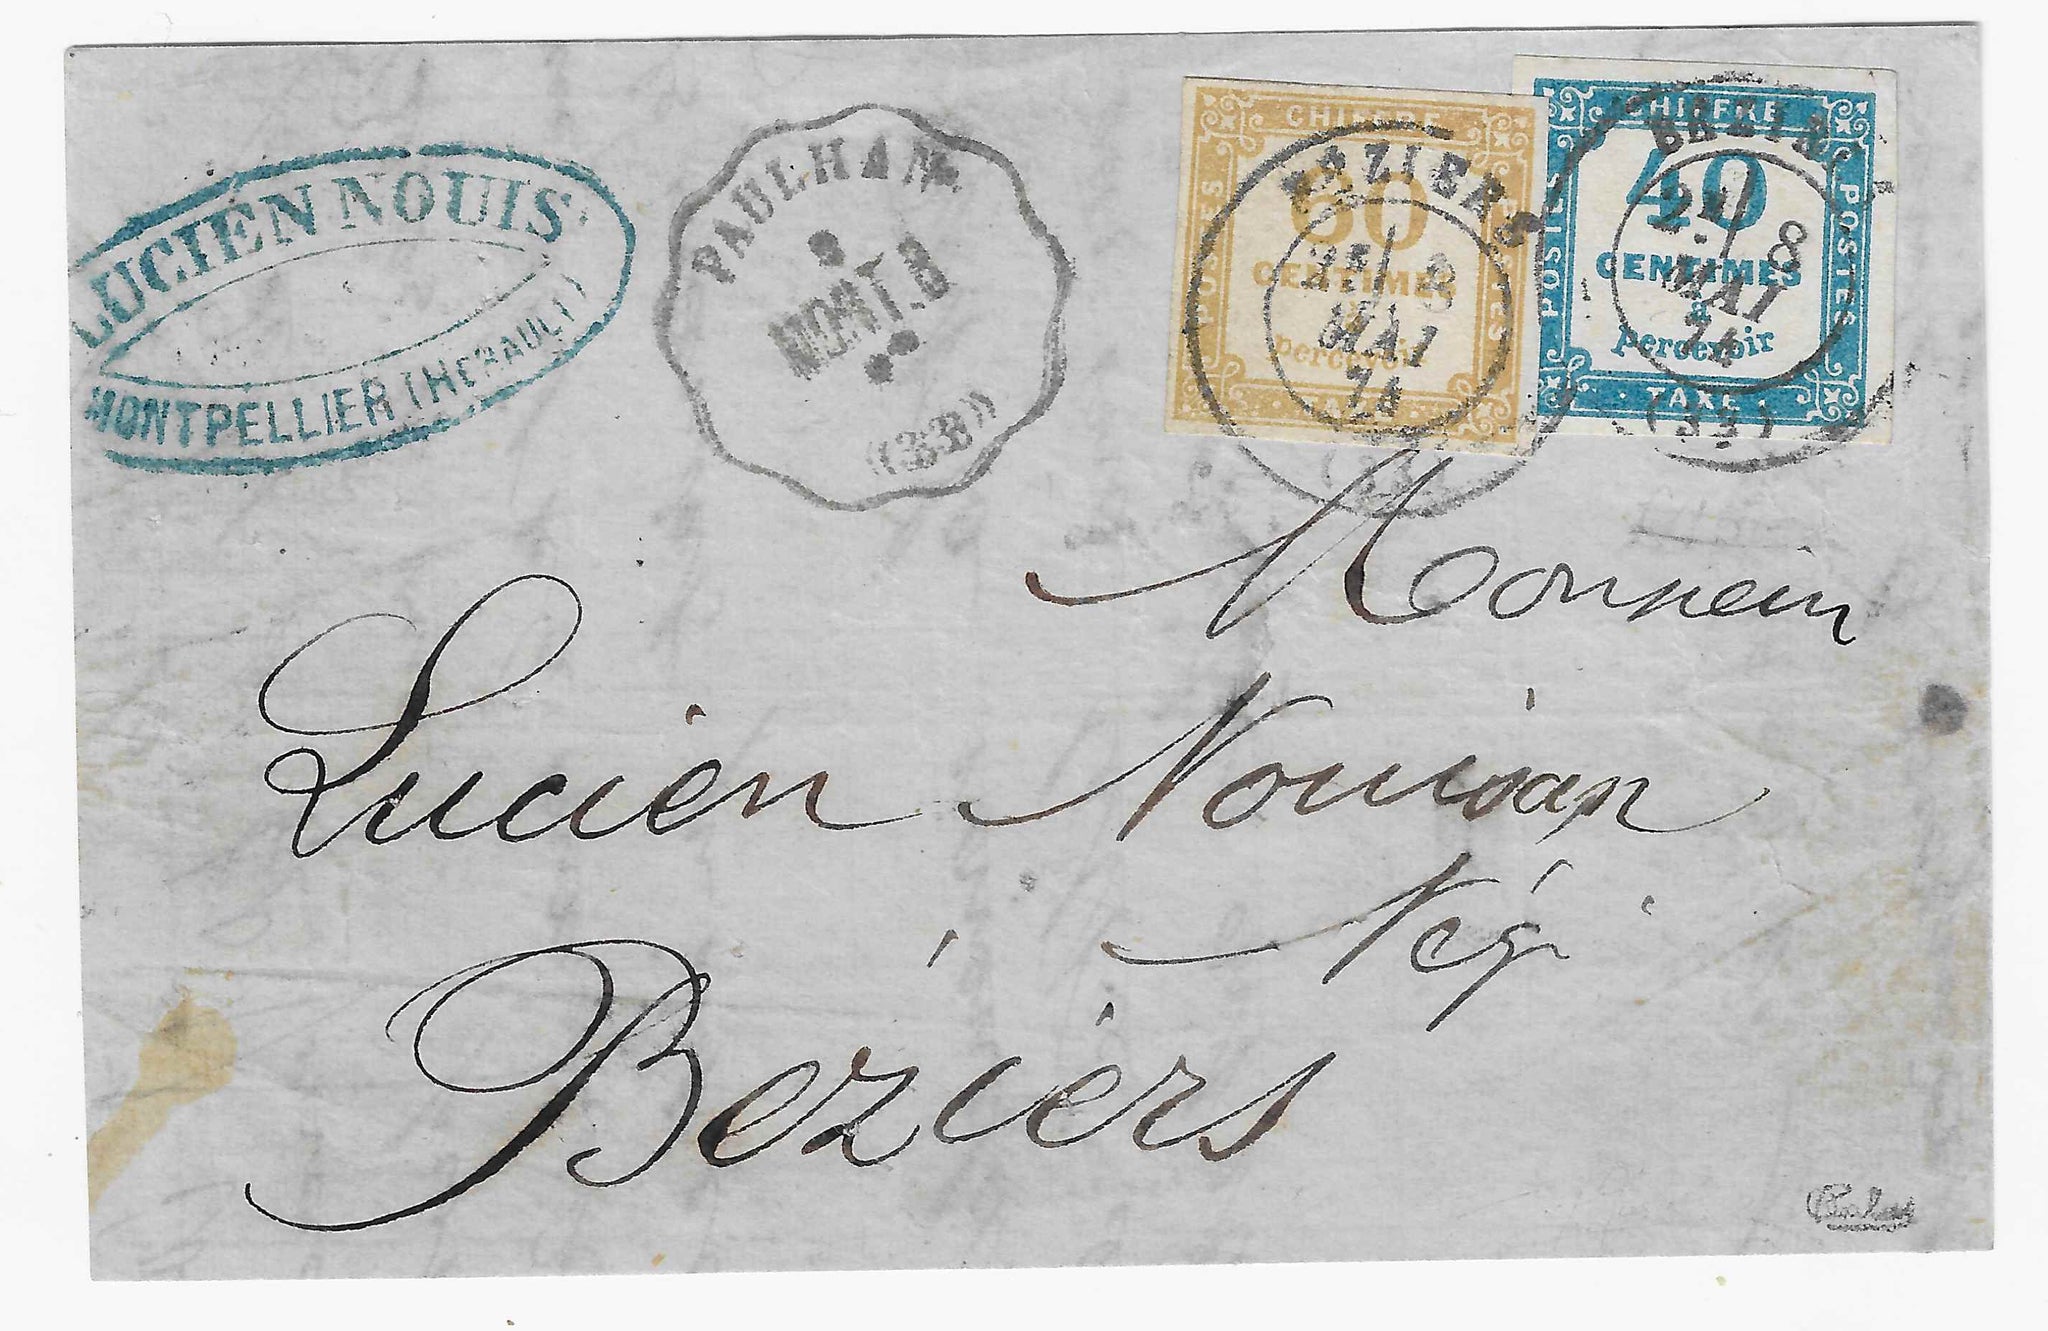 LUCIEN NOUIS
MONTPELLIER (HERAULT)
PAULHAN.
MONT.B
(33)
CHIFFRE
60
CENTIMES
à
percevoir
TAXE
POSTES
POSTES
BEZIERS
2E/ 8
MAI
74
(33)
CHIFFRE
40
CENTIMES
à
percevoir
TAXE
POSTES
POSTES
BEZIERS
2E/ 8
MAI
74
(33)
Monsieur
Lucien
Négt
Béziers
Calves